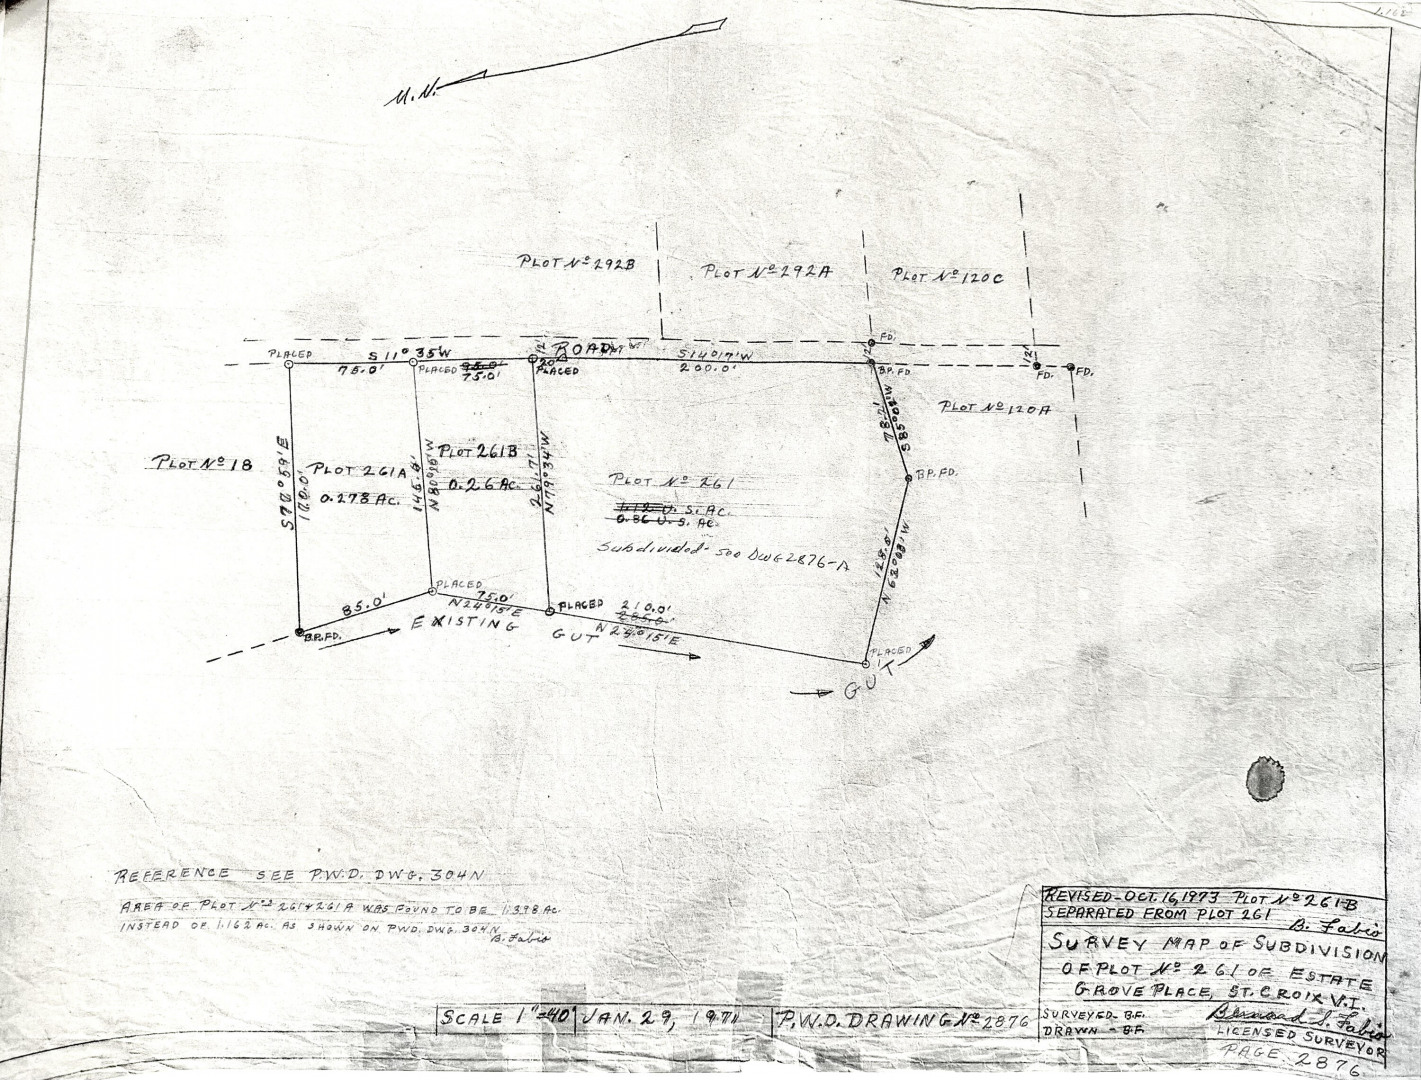 1.162
M.N.
PLOT Nº 292B
PLOT Nº 292A
PLOT Nº 120C
PLACED
S 11° 35'W
75.0'
PLACED
75.0'
12'
20'
ROAD
PLACED
S 14° 17' W
200.0'
FD.
12'
B.P. FD.
12'
FD.
FD.
PLOT Nº 120A
PLOT Nº 18
PLOT 261A
0.278 Ac.
PLOT 261B
0.26 Ac.
PLOT Nº 261
1.12 U.S. Ac.
0.86 U.S. Ac.
Subdivided - see DWG 2876-A
78.21
B.P. FD.
PLACED
85.0'
B.P. FD.
75.0'
N 24° 15' E
EXISTING
GUT
PLACED
210.0'
285.0'
N 24° 15' E
PLACED
GUT
REFERENCE SEE P.W.D. DWG. 304N
AREA OF PLOT Nºs 261 & 261A WAS FOUND TO BE 1.398 Ac.
INSTEAD OF 1.162 Ac. AS SHOWN ON PWD. DWG. 304N
B. Fabio
REVISED - OCT. 16, 1973 PLOT Nº 261-B
SEPARATED FROM PLOT 261
B. Fabio
SURVEY MAP OF SUBDIVISION
OF PLOT Nº 261 OF ESTATE
GROVE PLACE, ST. CROIX V.I.
SURVEYED - B.F.
DRAWN - B.F.
LICENSED SURVEYOR
SCALE 1"=40' JAN. 29, 1971 P.W.D. DRAWING Nº 2876
PAGE 2876